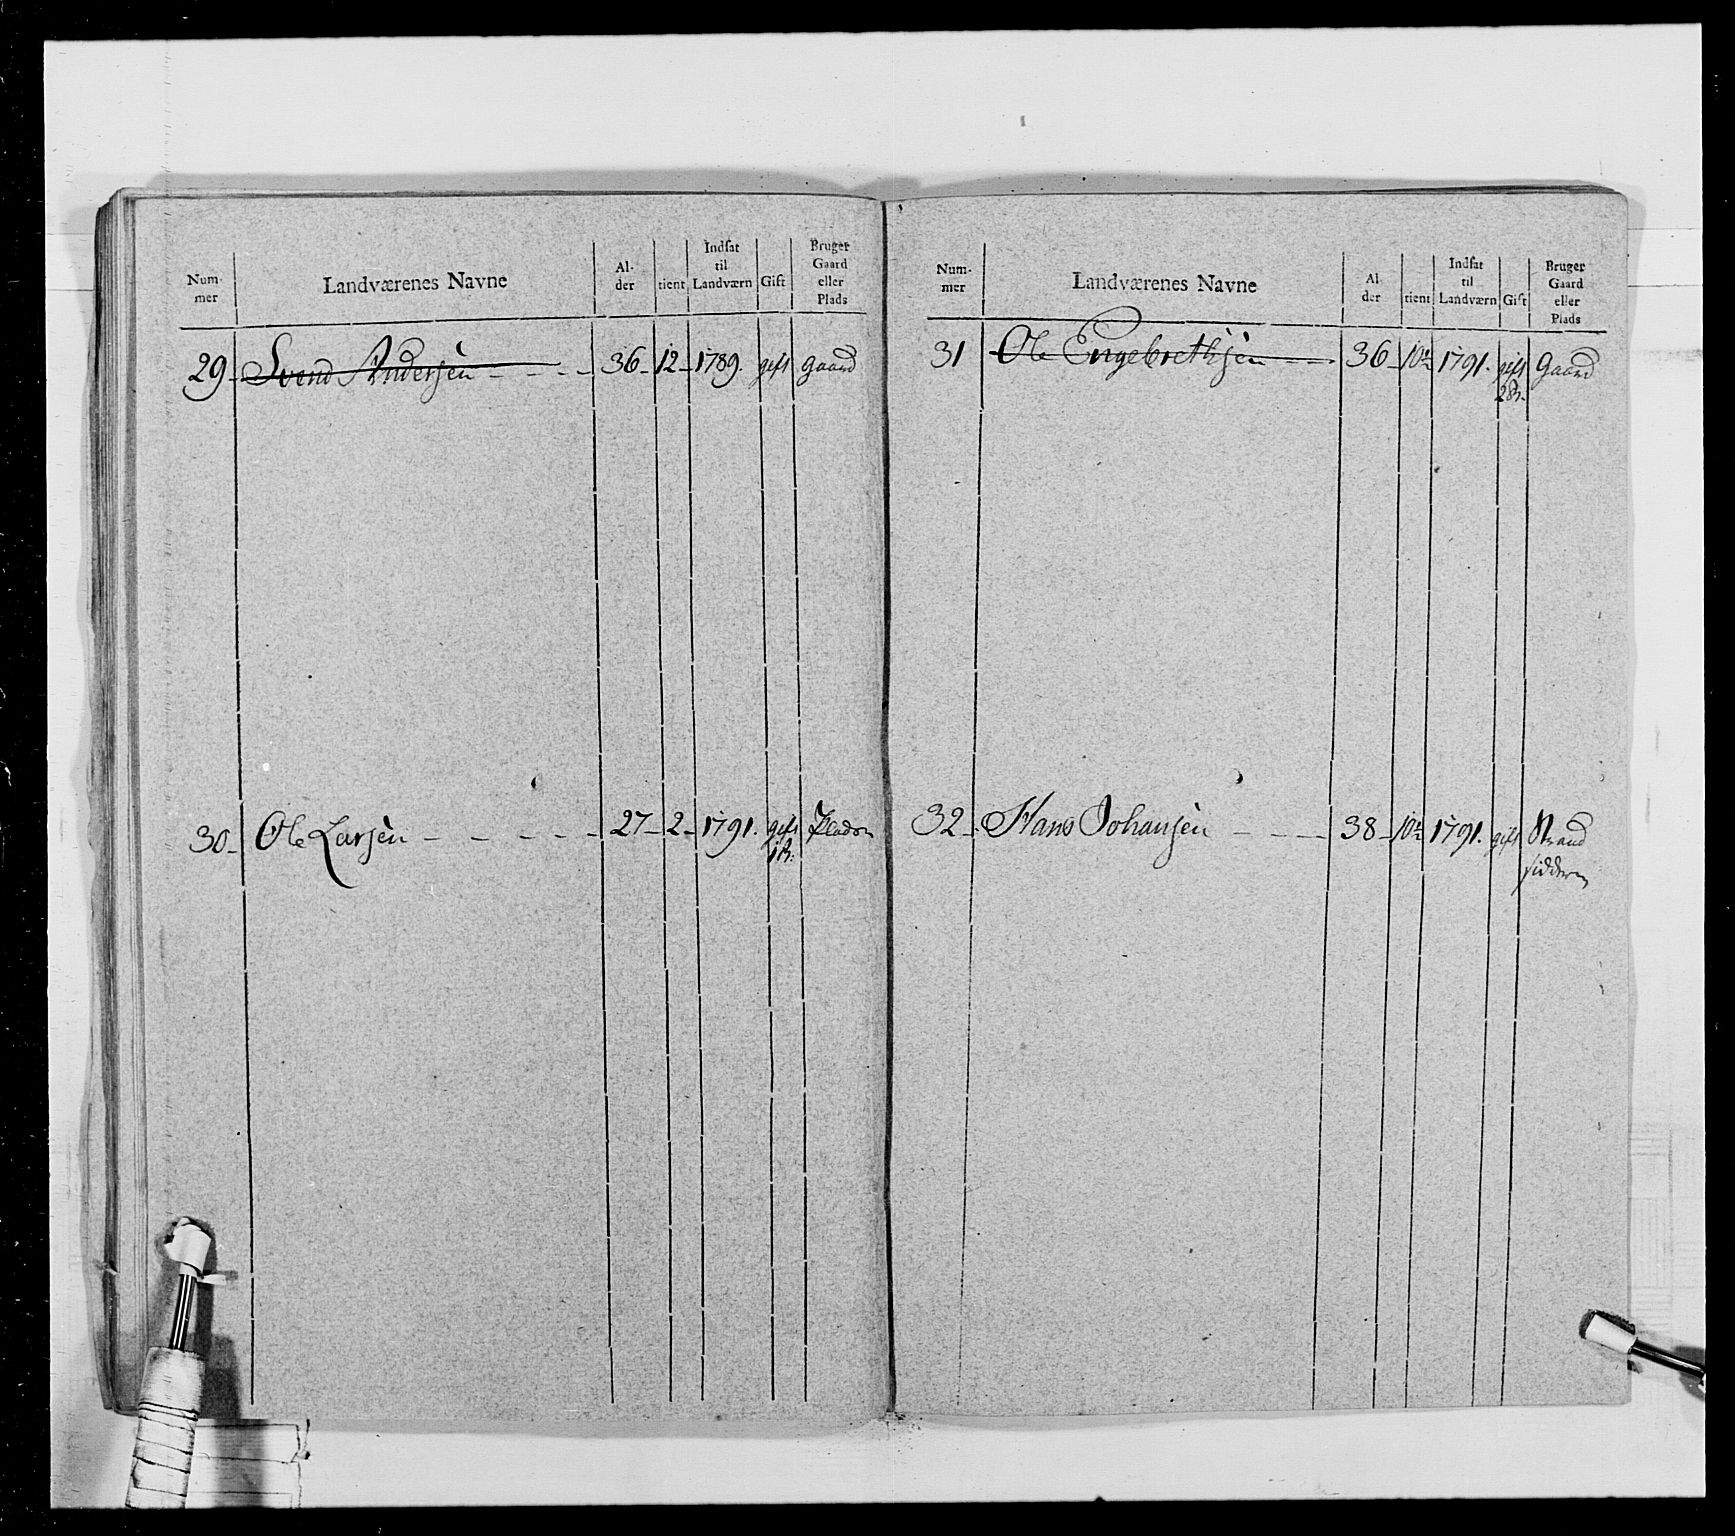 Num-
mer
Landværenes Navne
Al-
der
tient
Indsat
til
Landværn
Gift
Bruger
Gaard
eller
Plads
29 Svend Andersen - - - 36 12 1789. gift Gaard
30 Ole Larsen - - - - - 27 2 1791. gift Pladsen
1 B.
Num-
mer
Landværenes Navne
Al
der
tient
Indsat
til
Landværn
Gift
Bruger
Gaard
eller
Plads
31 Ole Engebrethsen 36 10 1791. gift Gaard
2 B.
32 Hans Johansen - - - 38 10 1791. gift Strand
sidderen